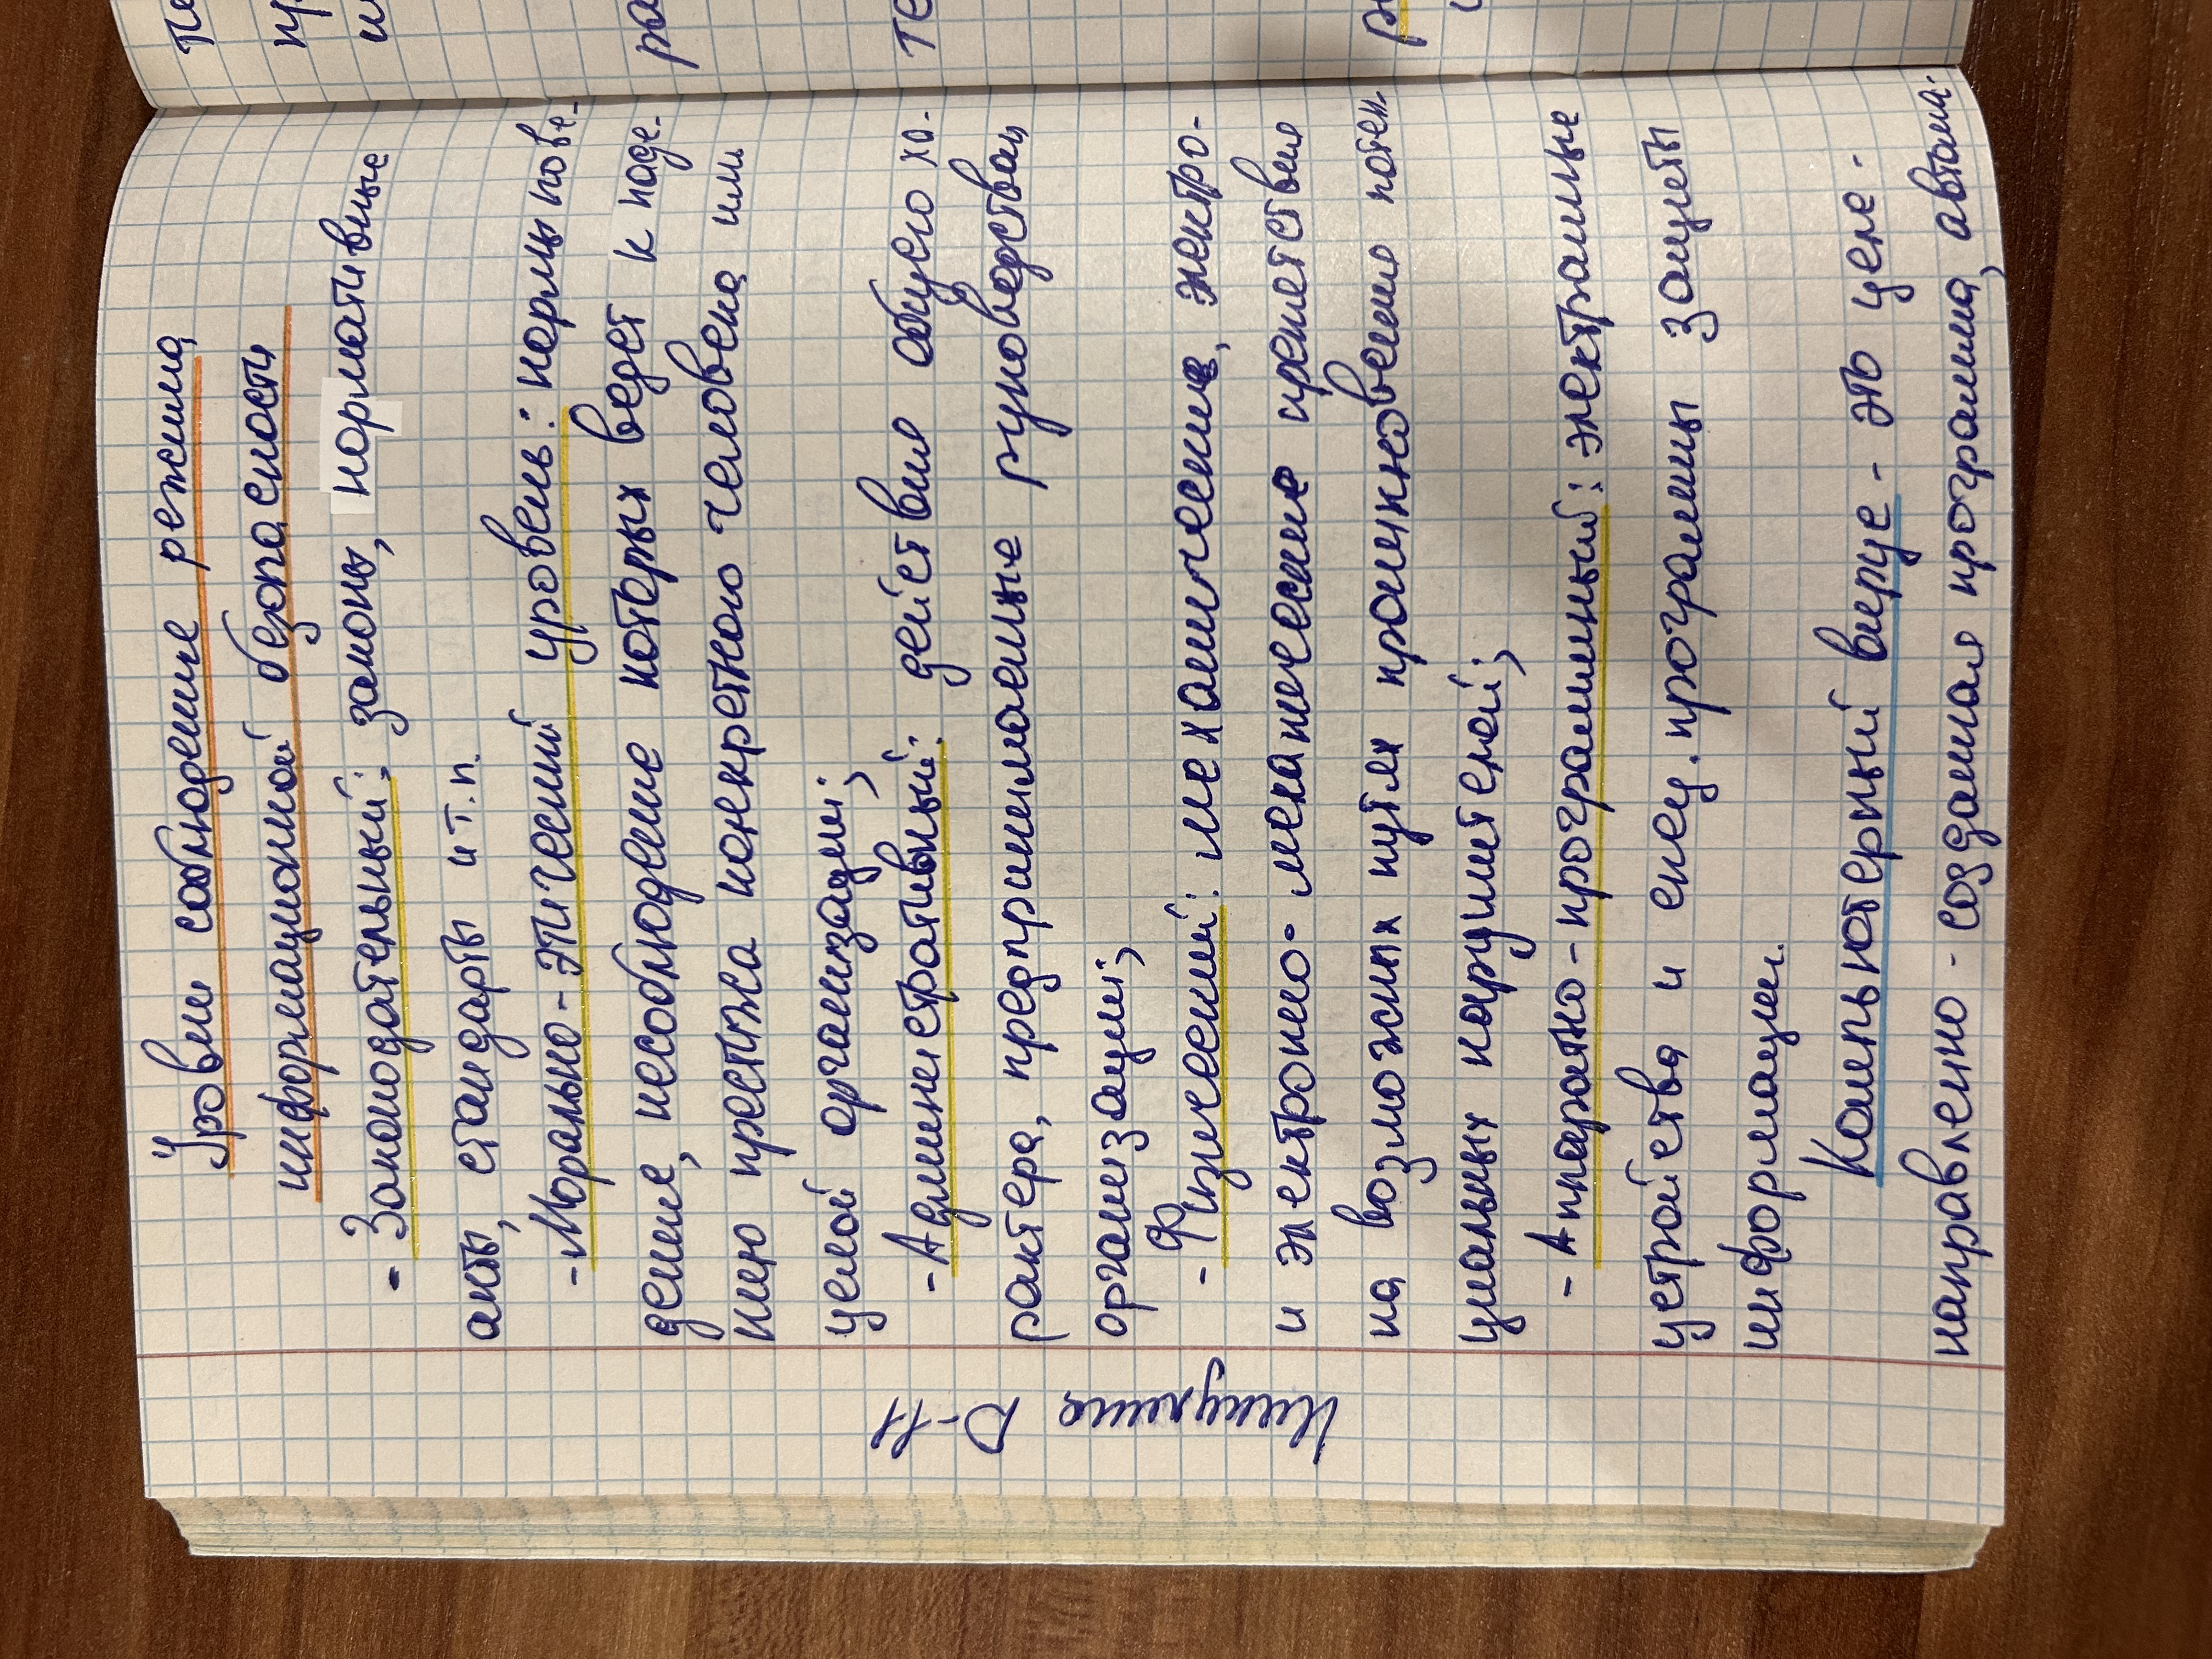 Уровни соблюдение режима
информационной безопасность
- Законодательный: законы, нормативные
акты, стандарты и т.п.
- Морально-этический уровень: нормы пове-
дение, несоблюдение которых ведет к паде-
нию престижа конкретного человека или
целой организации;
- Административный: действия общего ха-
рактера, предпринимаемые руководствам
организации;
- Физический: механические, электро-
и электроно-механические препетствия
на возможных путях проникновению потен-
циальных нарушителей;
- Аппаратно-програмный: электронные
устройства и спец. программы защиты
информации.
Компьютерный вирус - это целе-
направлено-созданная программа, автома-